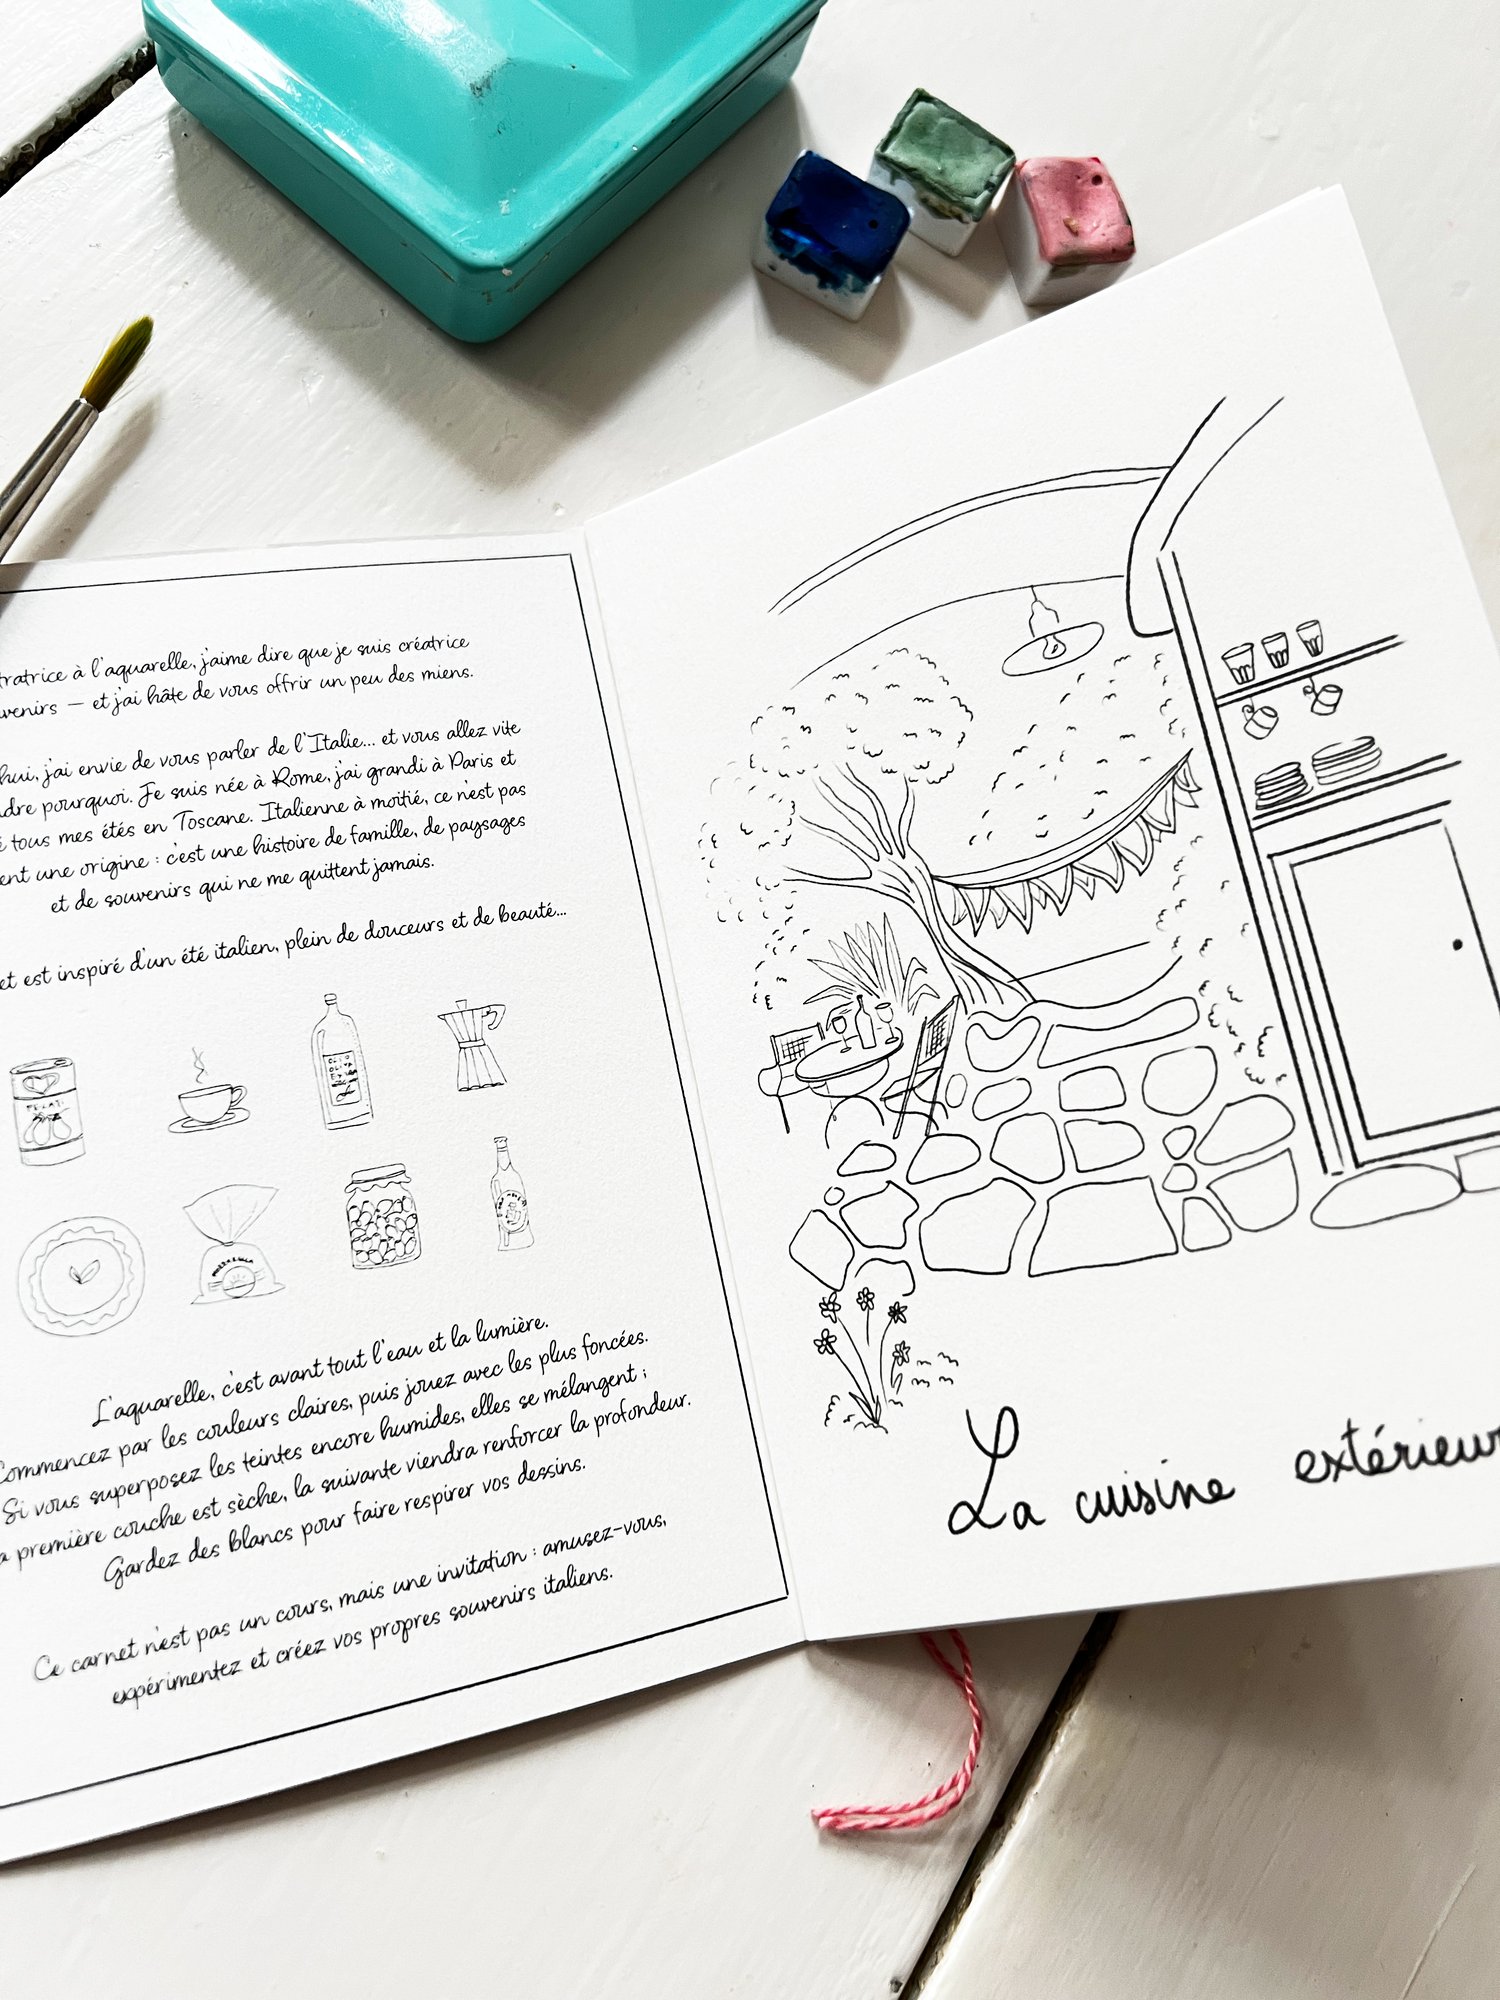 à l'aquarelle, j'aime dire que je suis créatrice
— et j'ai hâte de vous offrir un peu des miens.
j'ai envie de vous parler de l'Italie... et vous allez vite
pourquoi. Je suis née à Rome, j'ai grandi à Paris et
tous mes étés en Toscane. Italienne à moitié, ce n'est pas
une origine : c'est une histoire de famille, de paysages
et de souvenirs qui ne me quittent jamais.
est inspiré d'un été italien, plein de douceurs et de beauté...
PELATI
OLIO
OLIVA
EXTRA
MOZZARELLA
L'aquarelle, c'est avant tout l'eau et la lumière.
Commencez par les couleurs claires, puis jouez avec les plus foncées.
Si vous superposez les teintes encore humides, elles se mélangent ;
première couche est sèche, la suivante viendra renforcer la profondeur.
Gardez des blancs pour faire respirer vos dessins.
Ce carnet n'est pas un cours, mais une invitation : amusez-vous,
expérimentez et créez vos propres souvenirs italiens.
La cuisine extérieur